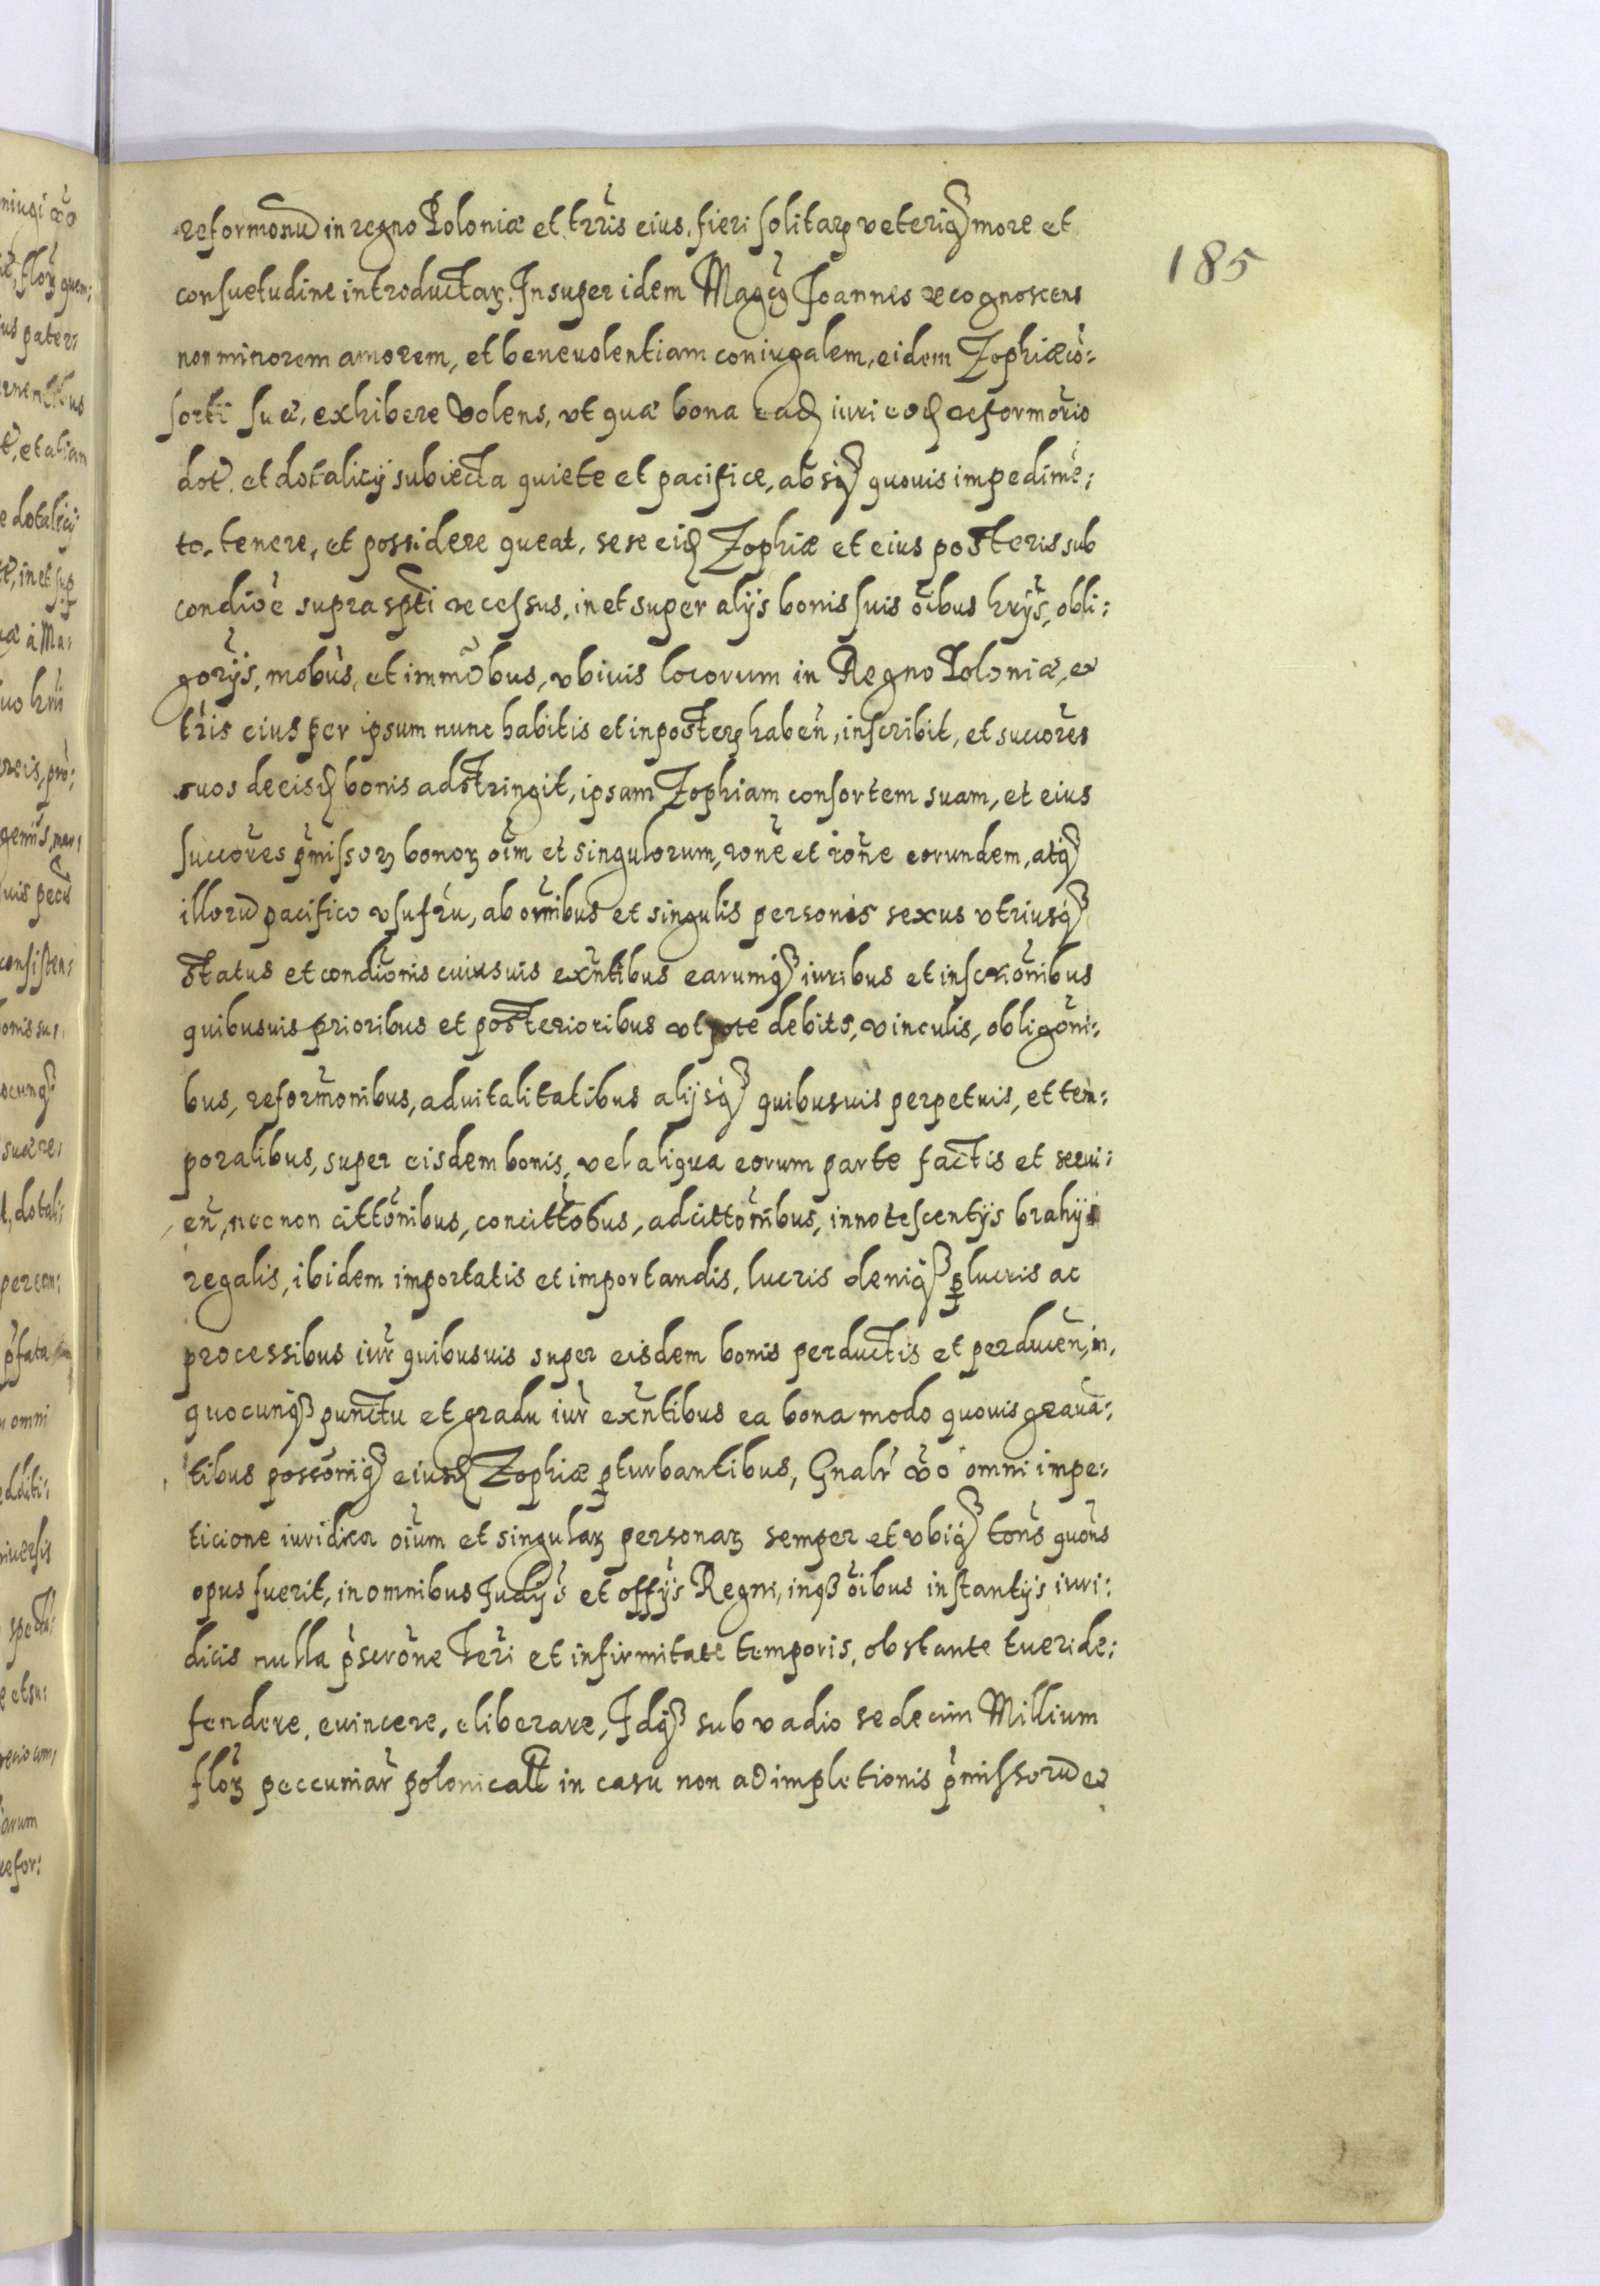 185
reformonu in regno Poloniæ et trris eius, fieri solitarꝫ veteriqꝫ more et
consuetudine introductarꝫ. Insuper idem Magcꝰ Joannes recognoscens
non minorem amorem, et beneuolentiam coniugalem, eidem Zophiæ cō:
sorti suæ, exhibere volens, vt quæ bona eadꝫ iuri eodꝫ reformōrio
dot. et dotalicÿ subiecta quiete et pacifice, absqꝫ quouis impedimē:
to, tenere, et possidere queat, sese eidꝫ Zophiæ et eius posteris sub
condiōē supra spti recessus, in et super alÿs bonis suis oībus hrÿs, obli:
gorÿs, mobus, et immobus, vbiuis locorum in Regno Poloniæ, et
tris eius per ipsum nunc habitis et in posterꝫ haben, inscribit, et succores
suos de eisdꝫ bonis adstringit, ipsam Zophiam consortem suam, et eius
succores pmissorꝫ bonorꝫ oīm et singulorum, rone et rone eorundem, atqꝫ
illoru pacifico vsufru, ab omībus et singulis personis sexus vtriusqꝫ
status et condionis cuiusuis exntibus earumqꝫ iuribus et inscrionibus
quibusuis prioribus et posterioribus vtpote debits, vinculis, obligoni:
bus, reformonibus, aduitalitatibus alijsqꝫ quibusuis perpetuis, et tem:
poralibus, super eisdem bonis, vel aliqua eorum parte factis et serui:
en, nec non cittonibus, concittobus, adcittonibus, innotescentÿs brahÿs
regalis, ibidem importatis et importandis, lucris deniqꝫ ꝑlucris ac
processibus iur quibusuis super eisdem bonis perductis et perducen, in,
quocunqꝫ punctu et gradu iur exntibus ea bona modo quouis grauā:
tibus possoniqꝫ eiusdꝫ Zophiæ ꝑturbantibus, Gnalr vo omni impe:
ticione iuridica oium et singularꝫ personarꝫ semper et vbiqꝫ tons quons
opus fuerit, in omnibus Judÿs et offÿs Regni, inqꝫ oibus instantÿs iuri:
dicis nulla pscrone Teri et infirmitate temporis, obstante tueri de:
fendere, euincere, eliberare, Idqꝫ sub vadio sedecim Millium
florꝫ peccuniar polonicalt in casu non adimpletionis pmissoru et